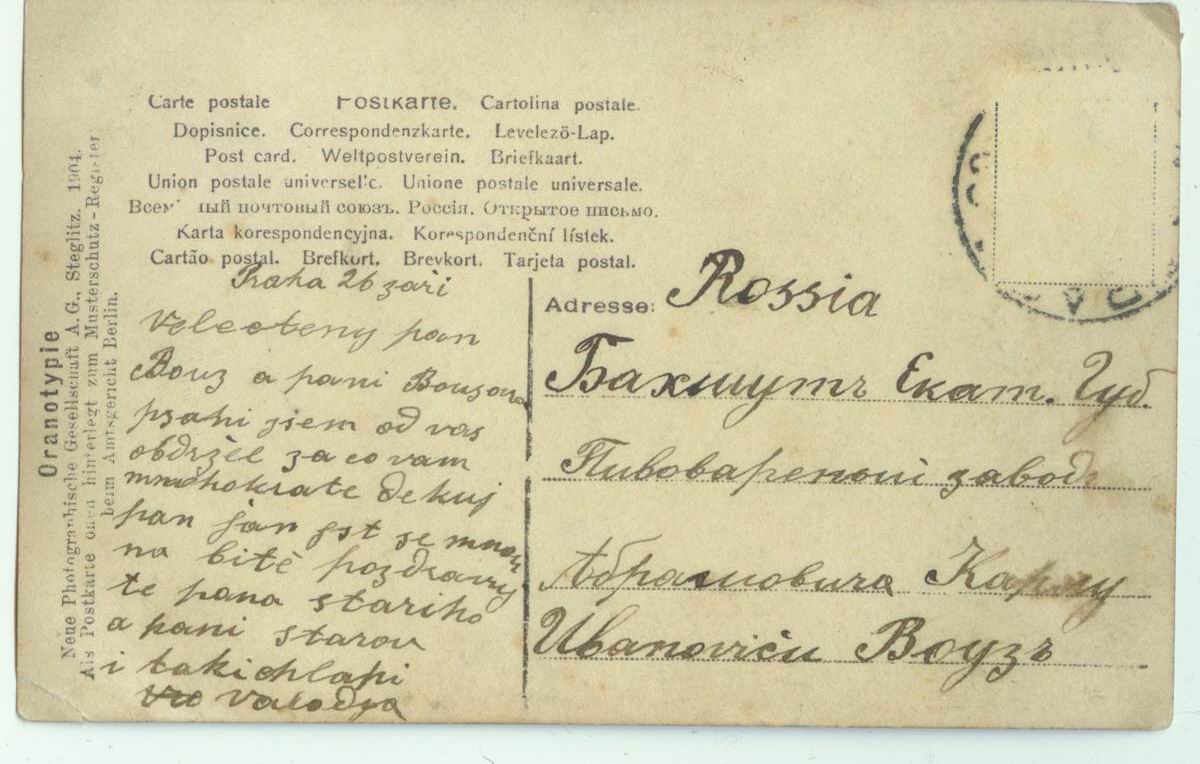 Carte postale Postkarte. Cartolina postale.
Dopisnice. Correspondenzkarte. Levelező-Lap.
Post card. Weltpostverein. Briefkaart.
Union postale universelle. Unione postale universale.
Всемірный почтовый союзъ. Россія. Открытое письмо.
Karta korespondencyjna. Korespondenční lístek.
Cartão postal. Brefkort. Brevkort. Tarjeta postal.
Praha 26 zari
Velecteny pan
Bouz a pani Bouzova
psani jsem od vas
obdržel za co vam
mnohokrate dekuj
pan jan jst se mnou
na bitě pozdravuj
te pana stariho
a pani starou
i taki chlapi
Valodja
Adresse: Rossia
Бахмутъ Екат. Губ.
Пивоваренои завод
Абрамовича Карлу
Иvanoviću Воузъ
Oranotypie
Neue Photographische Gesellschaft A.G., Steglitz. 1904.
Als Postkarte onen hinterlegt zum Musterschutz-Register
beim Amtsgericht Berlin.